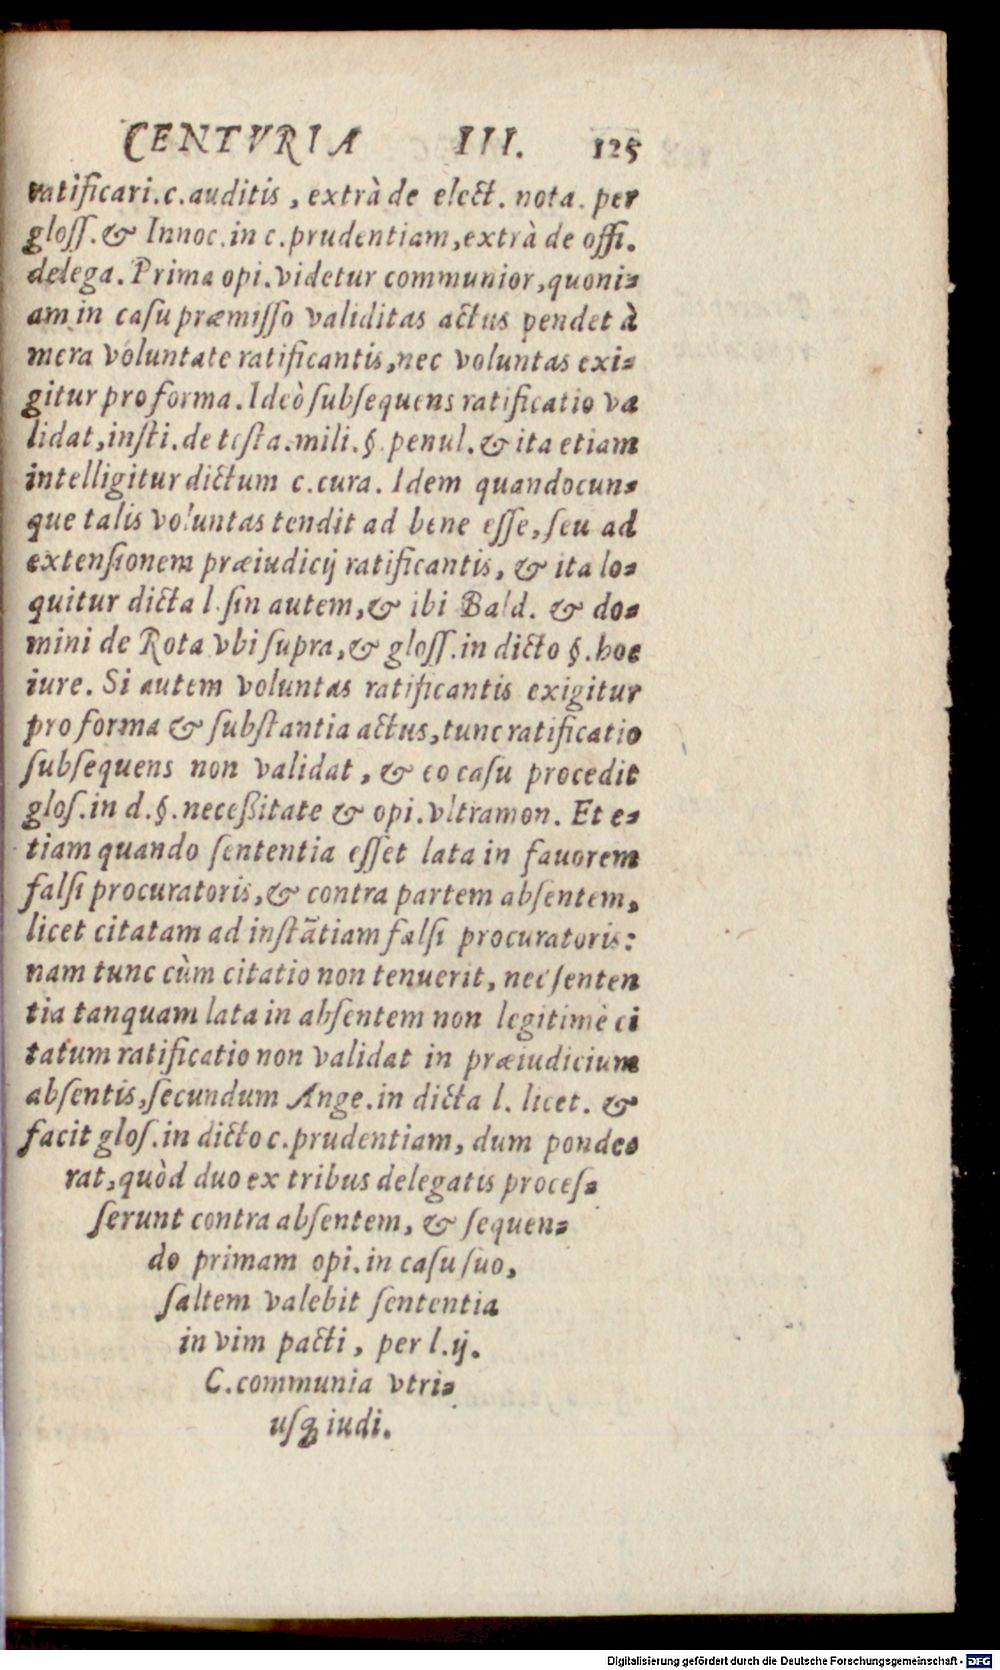 CENTVRIA III. 125
ratificari.c.auditis, extrà de elect. nota. per
gloſſ.& Innoc.in c.prudentiam,extrà de offi.
delega. Prima opi.videtur communior,quoni=
am in caſu præmiſſo validitas actus pendet à
mera voluntate ratificantis,nec voluntas exi=
gitur pro forma. Ideò ſubſequens ratificatio va
lidat,inſti.de teſta.mili.§.penul.& ita etiam
intelligitur dictum c.cura. Idem quandocun=
que talis voluntas tendit ad bene eſſe,ſeu ad
extenſionem præiudicij ratificantis, & ita lo=
quitur dicta l.ſin autem,& ibi Bald. & do=
mini de Rota vbi ſupra,& gloſſ.in dicto §.hoc
iure. Si autem voluntas ratificantis exigitur
pro forma & ſubſtantia actus,tunc ratificatio
ſubſequens non validat, & eo caſu procedit
gloſ.in d.§.neceßitate & opi.vltramon. Et e=
tiam quando ſententia eſſet lata in fauorem
falſi procuratoris,& contra partem abſentem,
licet citatam ad inſtātiam falſi procuratoris:
nam tunc cùm citatio non tenuerit, nec ſenten
tia tanquam lata in abſentem non legitimè ci
tatum ratificatio non validat in præiudicium
abſentis,ſecundum Ange.in dicta l. licet. &
facit gloſ.in dicto c.prudentiam, dum ponde=
rat,quòd duo ex tribus delegatis proceſ=
ſerunt contra abſentem, & ſequen=
do primam opi.in caſu ſuo,
ſaltem valebit ſententia
in vim pacti, per l.ij.
C.communia vtri=
uſq; iudi.
Digitalisierung gefördert durch die Deutsche Forschungsgemeinschaft - DFG